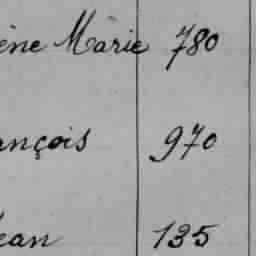 ène Marie 780
ançois 970
ean 135